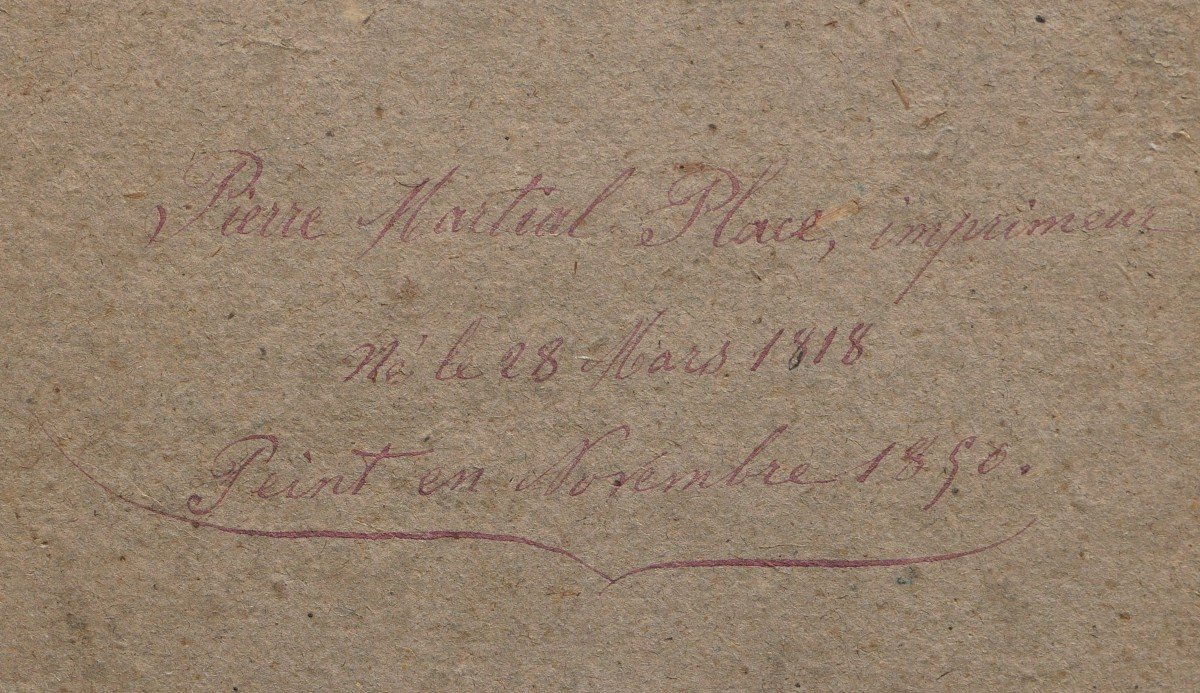 Pierre Martial Place, imprimeur
Né le 28 Mars 1818
Peint en Novembre 1850.